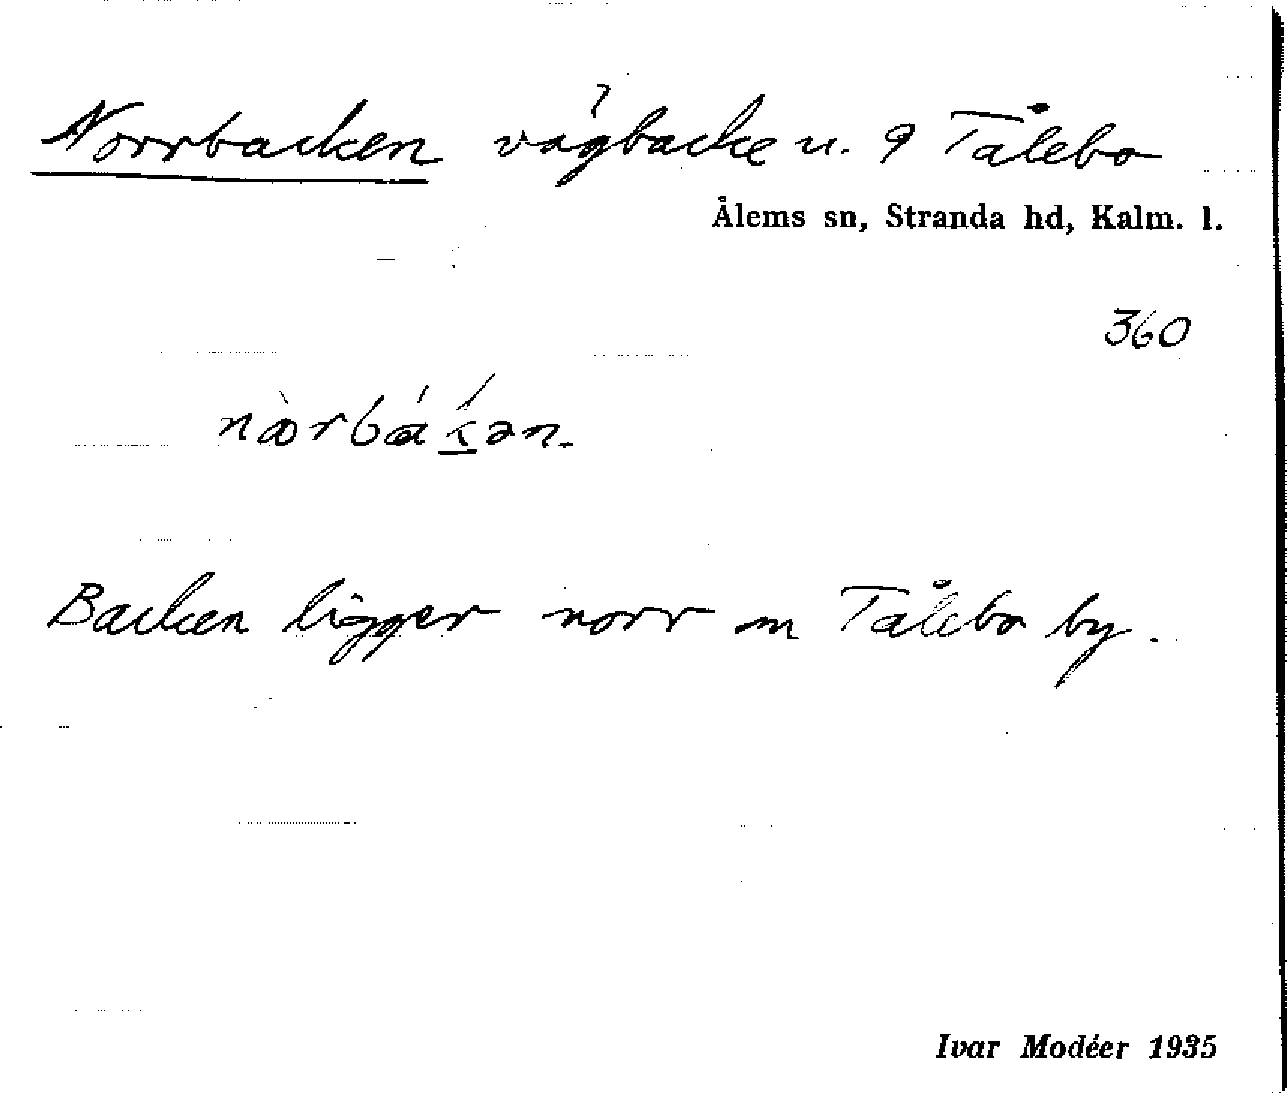 Norrbacken vägbacke n. 9 Tålebo
Ålems sn, Stranda hd, Kalm. l.
360
Backen ligger norr om Tålebo by.
Ivar Modéer 1935